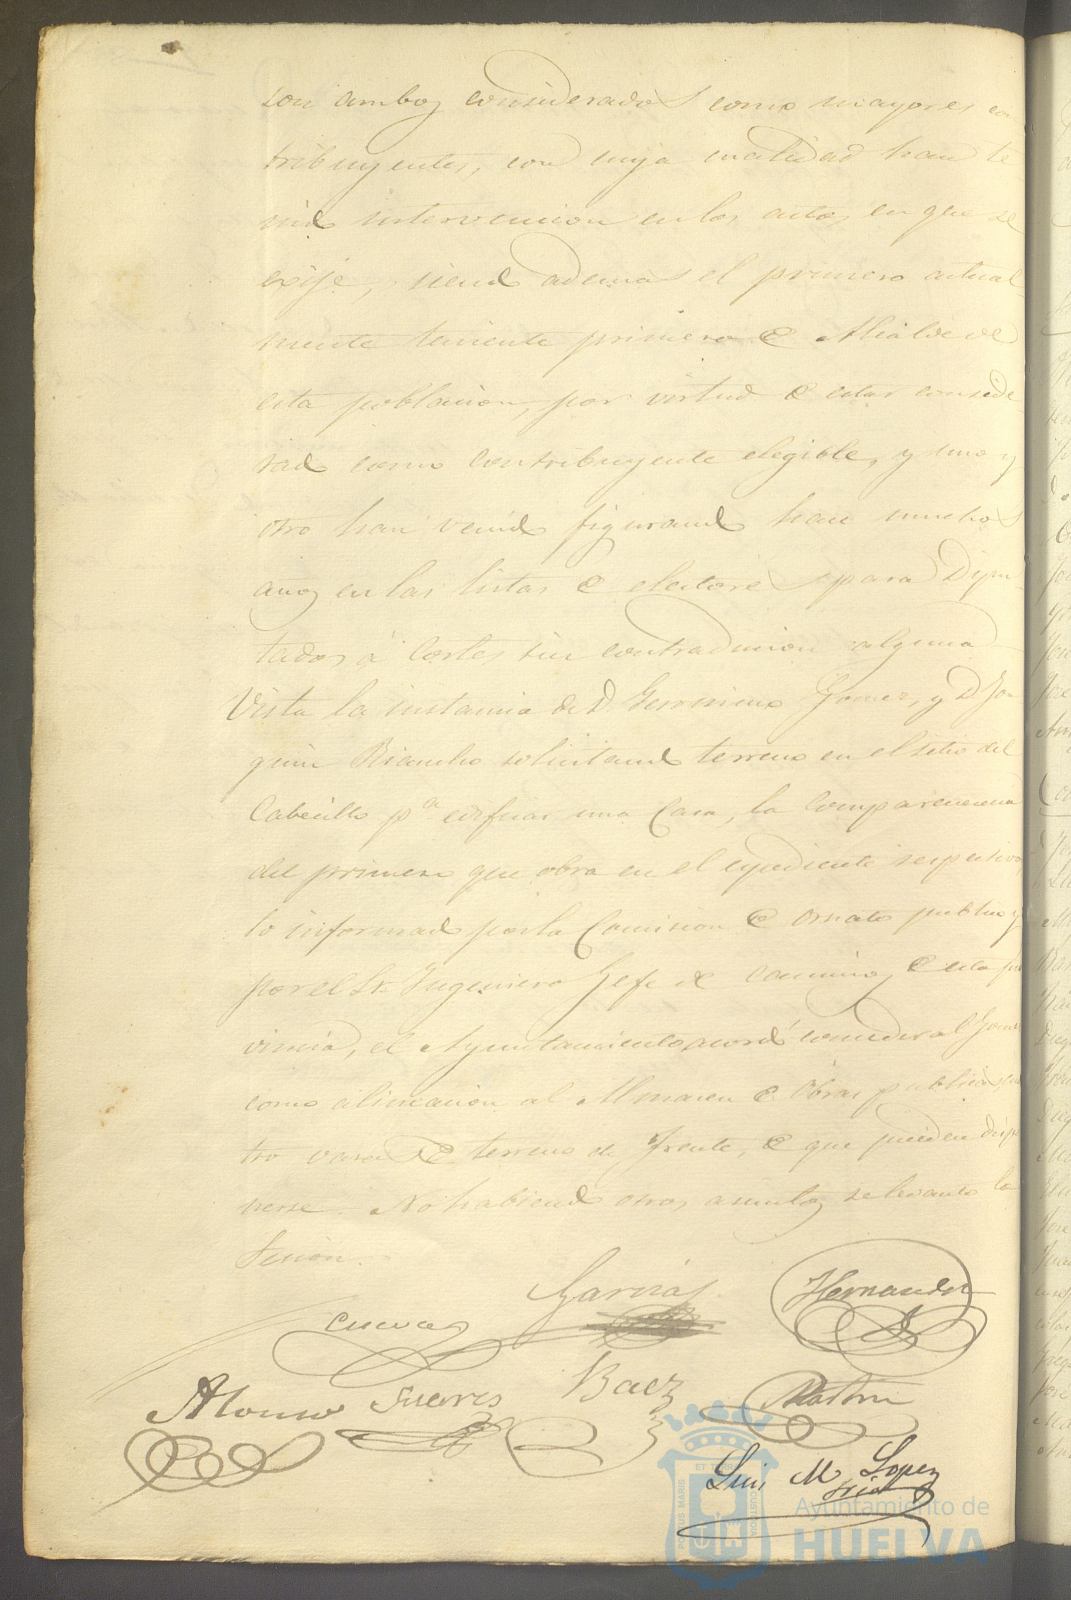 son ambos considerados como mayores con
tribuyentes, con cuya cualidad han te
nido intervencion en los actos en que se
exije, siendo ademas el primero actual-
mente teniente primero de Alcalde de
esta poblacion, por virtud de estar conside-
rado como contribuyente elegible, y uno y
otro han venido figurando hace muchos
años en las listas de electores para Dipu
tados á Cortes sin contradiccion alguna
Vista la instancia de D. Geronimo Gomez, y D. Joa
quin Riancho solicitando terreno en el sitio del
Cabecillo pa. edificar una Casa, la comparecencia
del primero que obra en el expediente respectivo,
lo informado por la Comision de Ornato publico y
por el Sr. Ingeniero Gefe de caminos de esta pro
vincia, el Ayuntamiento acordó conceder al Gomez
como alineacion al Almacen de Obras publicas cua
tro varas de terreno de frente, de que pueden
verse. No habiendo otros asuntos se levanto la
Sesion.
Garcia Hernandez
Cuevas
Alonso Suares Baez
Luis M. Lopez
Srio
ET TERRAE
PORTUS MARIS
CUSTODIA
Ayuntamiento de
HUELVA